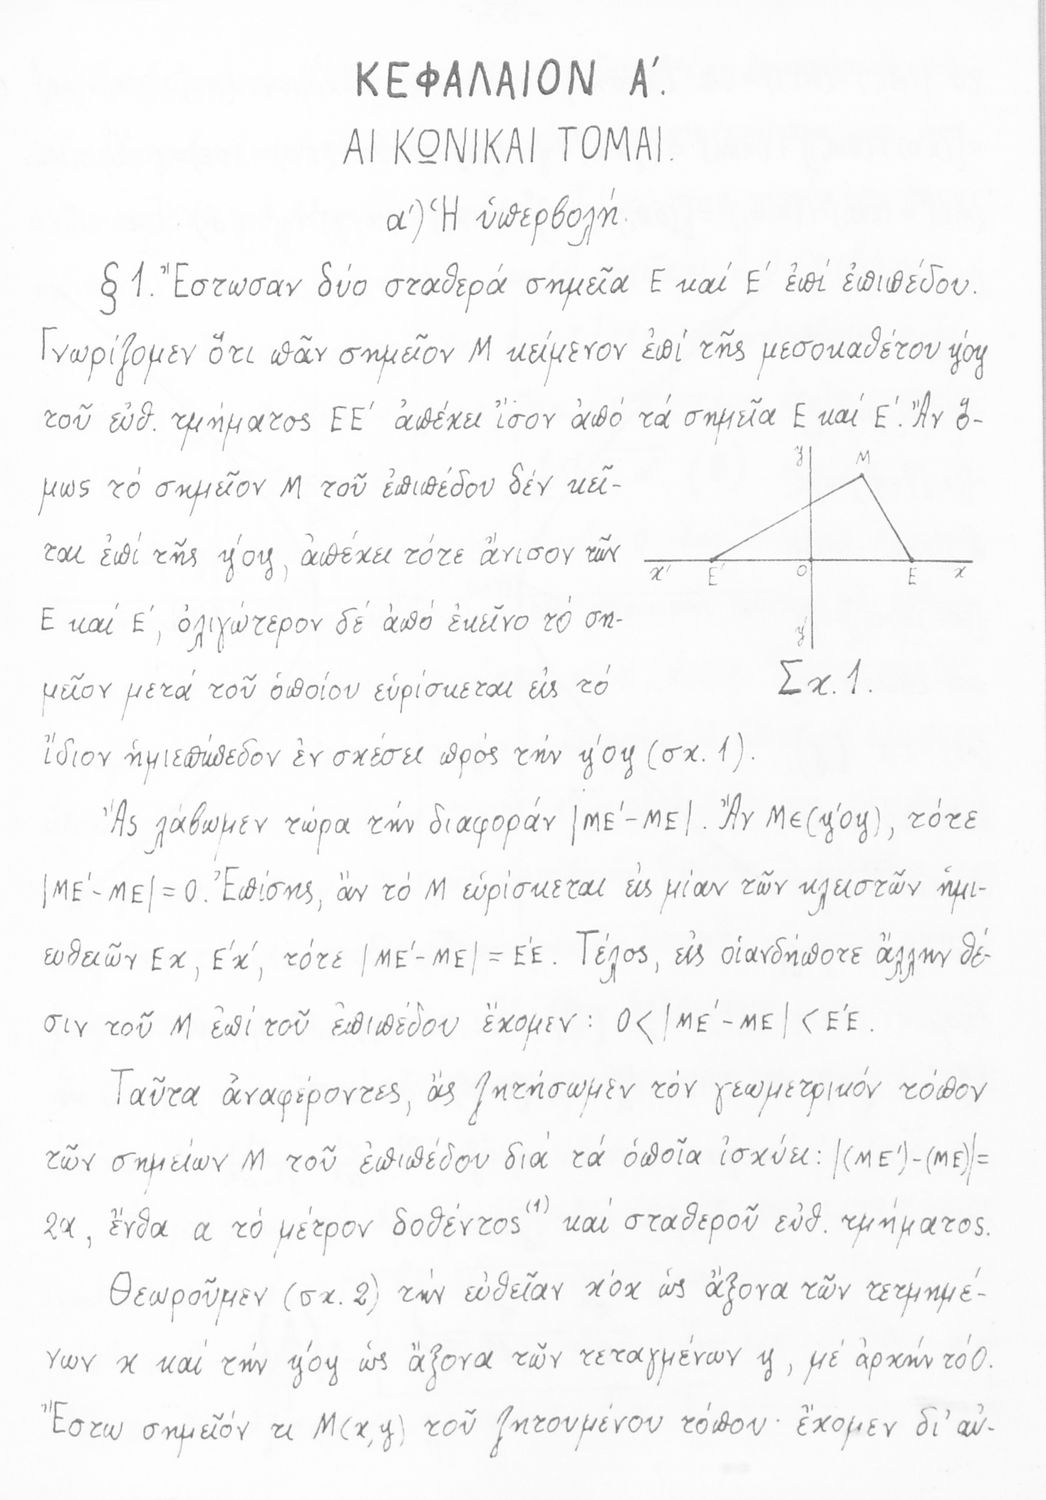 ΚΕΦΑΛΑΙΟΝ Α΄.
ΑΙ ΚΩΝΙΚΑΙ ΤΟΜΑΙ.
α΄) Ἡ ὑπερβολή.
§ 1. Ἔστωσαν δύο σταθερά σημεῖα Ε καί Ε΄ ἐπί ἐπιπέδου.
Γνωρίζομεν ὅτι πᾶν σημεῖον Μ κείμενον ἐπί τῆς μεσοκαθέτου y΄oy
τοῦ εὐθ. τμήματος ΕΕ΄ ἀπέχει ἴσον ἀπό τά σημεῖα Ε καί Ε΄. Ἄν ὅ-
μως τό σημεῖον Μ τοῦ ἐπιπέδου δέν κεῖ-
ται ἐπί τῆς y΄oy, ἀπέχει τότε ἄνισον τῶν
Ε καί Ε΄, ὀλιγώτερον δέ ἀπό ἐκεῖνο τό ση-
μεῖον μετά τοῦ ὁποίου εὑρίσκεται εἰς τό
ἴδιον ἡμιεπίπεδον ἐν σχέσει πρός τήν y΄oy (σχ. 1).
y
M
x΄ E΄ O E x
y΄
Σχ. 1.
Ἄς λάβωμεν τώρα τήν διαφοράν |ΜΕ΄-ΜΕ|. Ἄν Μ∈(y΄oy), τότε
|ΜΕ΄-ΜΕ|=0. Ἐπίσης, ἄν τό Μ εὑρίσκεται εἰς μίαν τῶν κλειστῶν ἡμι-
ευθειῶν Εx, Ε΄x΄, τότε |ΜΕ΄-ΜΕ|=Ε΄Ε. Τέλος, εἰς οἱανδήποτε ἄλλην θέ-
σιν τοῦ Μ ἐπί τοῦ ἐπιπέδου ἔχομεν: 0<|ΜΕ΄-ΜΕ|<Ε΄Ε.
Ταῦτα ἀναφέροντες, ἄς ζητήσωμεν τόν γεωμετρικόν τόπον
τῶν σημείων Μ τοῦ ἐπιπέδου διά τά ὁποῖα ἰσχύει: |(ΜΕ΄)-(ΜΕ)|=
2α, ἔνθα α τό μέτρον δοθέντος⁽¹⁾ καί σταθεροῦ εὐθ. τμήματος.
Θεωροῦμεν (σχ. 2) τήν εὐθεῖαν x΄ox ὡς ἄξονα τῶν τετμημέ-
νων x καί τήν y΄oy ὡς ἄξονα τῶν τεταγμένων y, μέ ἀρχήν τό Ο.
Ἔστω σημεῖόν τι Μ(x,y) τοῦ ζητουμένου τόπου· ἔχομεν δι᾽ αὐ-